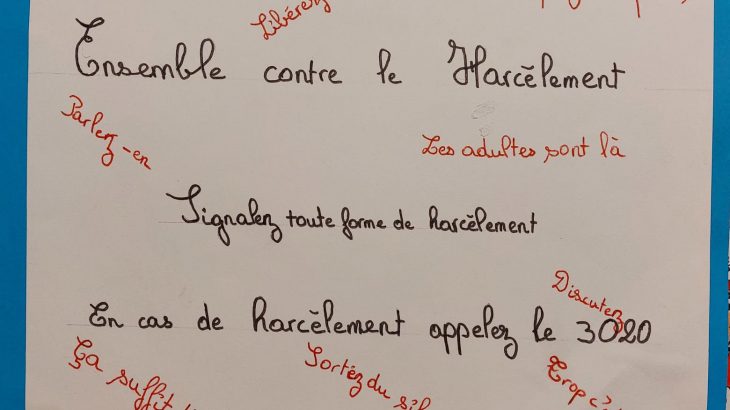 Libérez
Ensemble contre le Harcèlement
Parlez-en
Les adultes sont là
Signalez toute forme de harcèlement
Discutez
En cas de harcèlement appelez le 3020
Ça suffit
Sortez du
Trop